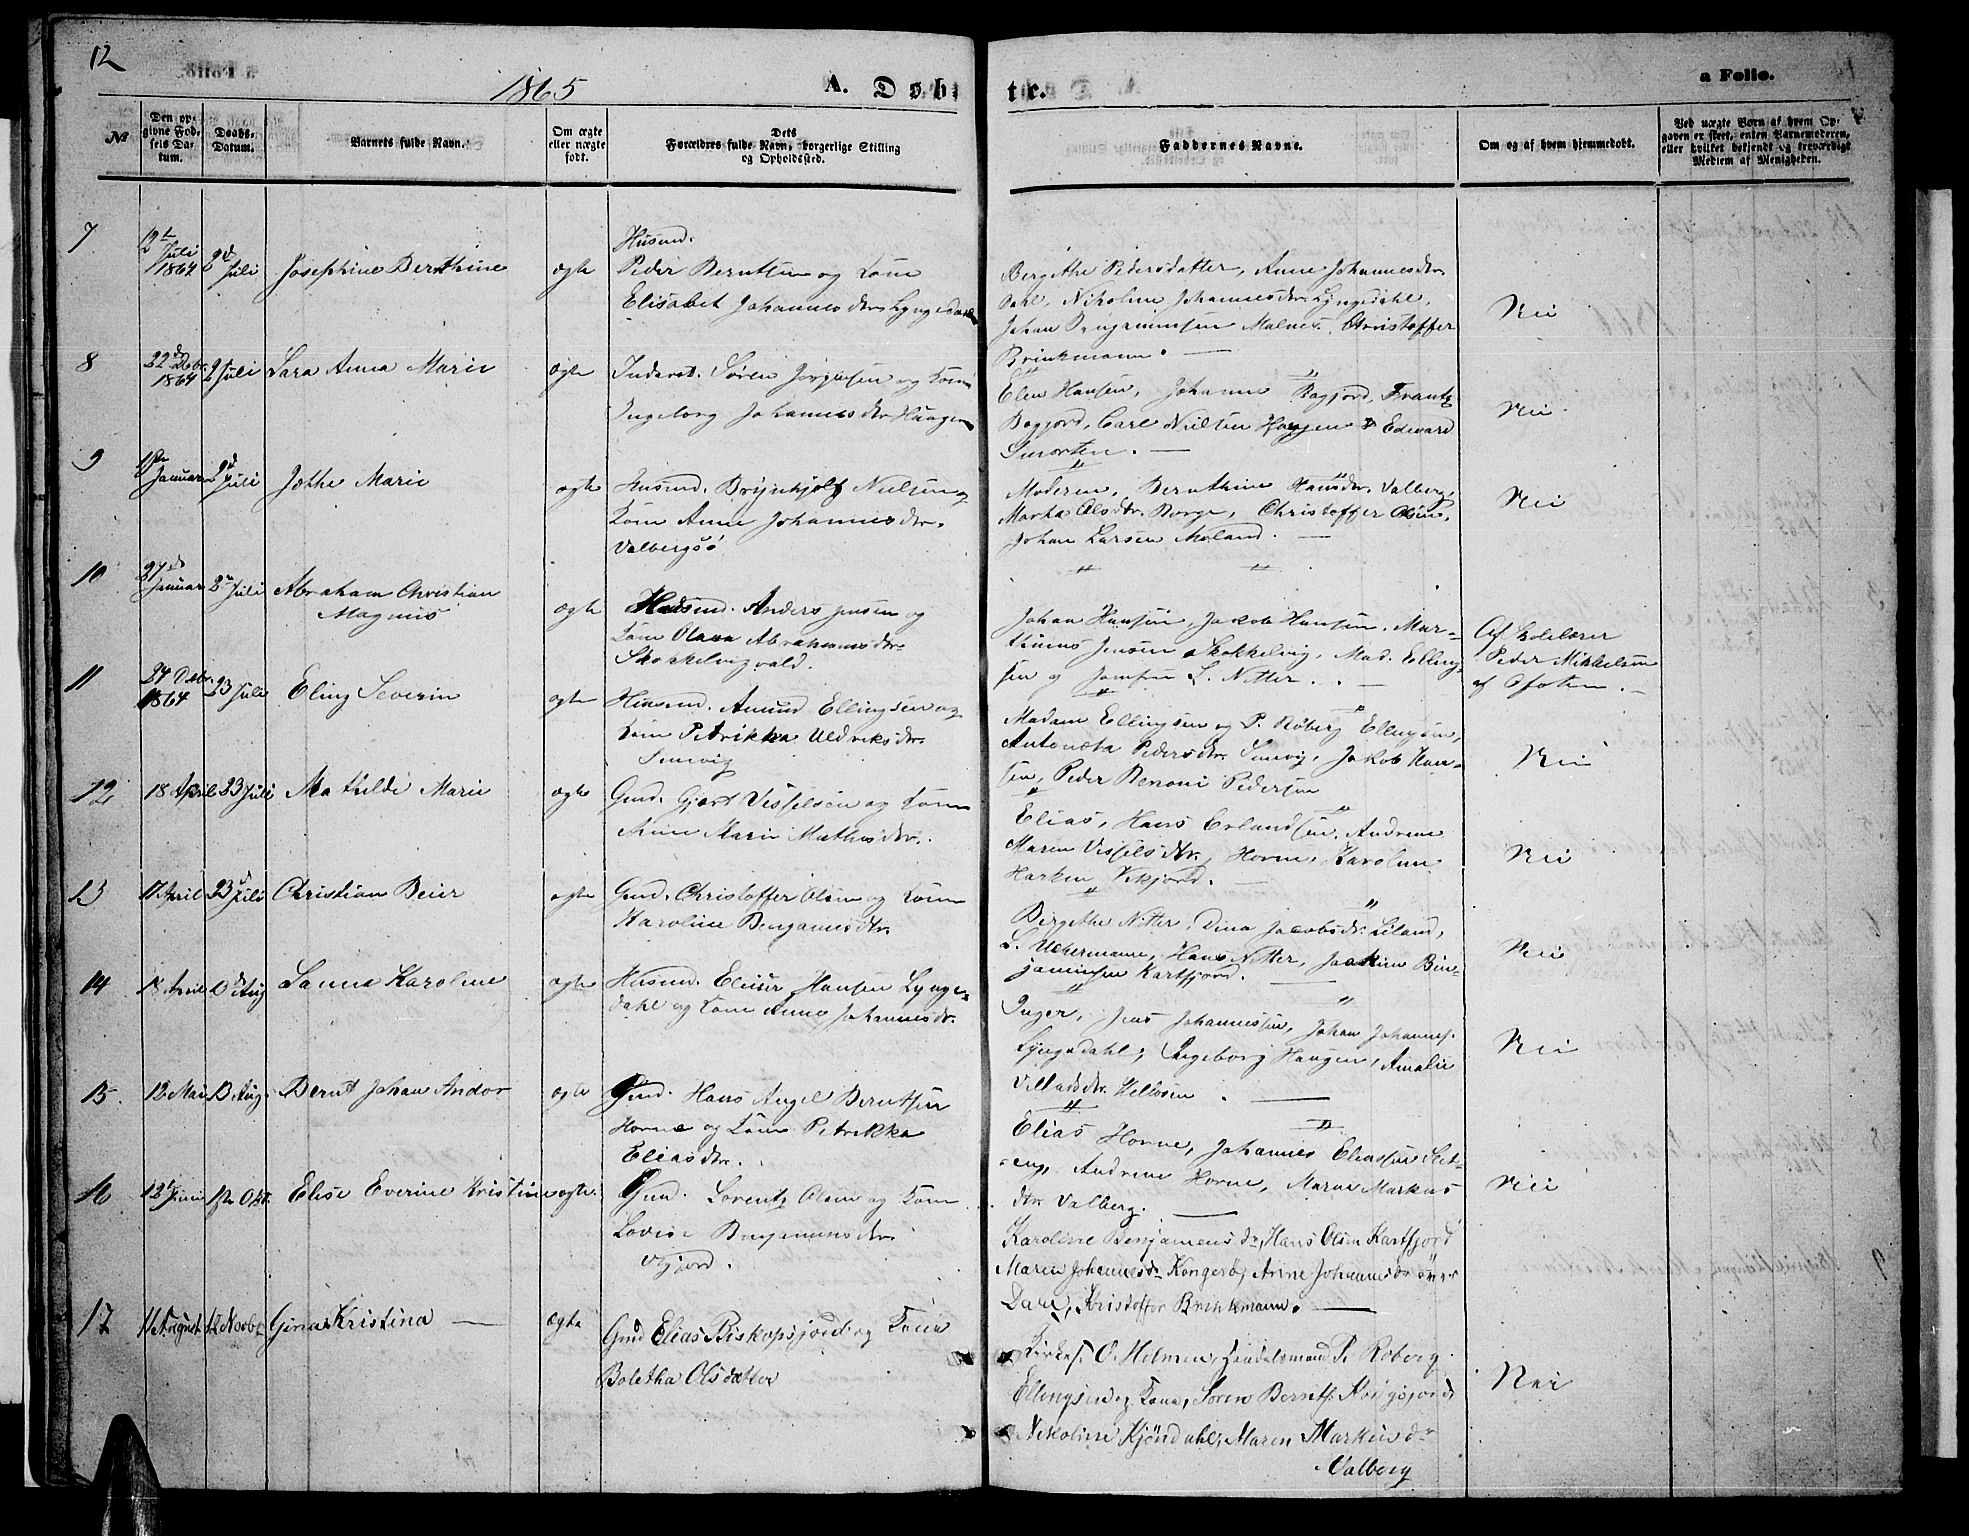 12
1865
A. Døb-
te.
a Folio.
№
Den opgivne Fødsels Datum.
Daabs-Datum.
Barnets fulde Navn.
Om ægte eller uægte født.
Dets Forældres fulde Navn, borgerlige Stilling og Opholdssted.
Faddernes Navne.
Om og af hvem hjemmedøbt.
Ved uægte Børn af hvem Opgaven er skeet, enten Barnemoderen, eller hvilket bekjendt og troværdigt Medlem af Menigheden.
7
12te Juli 1864
2d Juli
Josephine Bernthine
ægte
Husmd.
Peder Berntsen og Kone
Elisabet Johannesdtr. Lyngedahl
Bergithe Pedersdatter, Anne Johannesdtr.
Dahl, Nikoline Johannesdtr. Lyngedahl,
Johan Malnes, Christoffer
Brinkmann.
Nei
8
22d Debr. 1864
2d Juli
Sara Anna Marie
ægte
Inderst. Søren Jørgensen og Kone
Ingeborg Johannesdtr. Haugen
Elen Hansen, Johanne Bogfjord, Frantz
Bogfjord, Carl Nielsen Haugen & Edevard
Smorten.
Nei
9
Januar
2d Juli
Jethe Marie
ægte
Husmd. Brynhjolf Nielsen og
Kone Anne Johannesdtr.
Valbergsö
Moderen, Bernthine Hansdtr. Valberg,
Marta Olsdtr. Borge, Christoffer Olsen,
Johan Larsen Moland.
Nei
10
27de Januar
2d Juli
Abraham Christian
Magnus
ægte
Husmd. Anders Jensen og
Kone Olava Abrahamsdtr.
Skokkelvigvald.
Johan Hansen, Jakob Hansen, Mar-
thinus Jensen Skokkelvig, Mad. Elling-
sen og Jomfru L. Nitter.
Af Skolelærer
Peder Mikkelsen
af Ofoten.
11
24 Debr. 1864
23 Juli
Eling Severin
ægte
Husmd. Amund Ellingsen og
Kone Petrikka Uldriksdtr.
Sennvig
Madam Ellingsen og P. Röberg Ellingsen,
Antoneta Pedersdtr. Sannvig, Jakob Han-
sen, Peder Benoni Pedersen
Nei
12
18 April
23 Juli
Mathilde Marie
ægte
Gmd. Gjert Visselsen og Kone
Anne Marie Mathisdtr.
Elias, Hans Erlandsen, Andrine
Maren Visselsdtr. Horne, Karoline
Harken Vikjord.
Nei
13
17 April
23 Juli
Christian Beier
ægte
Gmd. Christoffer Olsen og Kone
Karoline Benjaminsdtr.
Bergithe Nitter, Dina Jacobsdtr. Liland,
L. Uchermann, Hans Nitter, Joakim Ben-
jaminsen Kartfjord.
Nei
14
18 April
Aug
Sanna Karoline
ægte
Husmd. Eliser Hansen Lynge-
dahl og Kone Anne Johannesdtr.
Inger, Jens Johannessen, Johan Johannes.
Lyngedahl, Ingeborg Haugen, Amalie
Villadsdtr. Hellosen.
Nei
15
12 Mai
13 Aug
Bernt Johan Andor
ægte
Gmd. Hans Angel Berntsen
Horne og Kone Petrikka
Eliasdtr.
Elias Horne, Johannes Eliassen Sket-
eng, Andrine Horne, Marna Markus
dtr. Valberg.
Nei
16
12te Juni
1ste Okt.
Elise Everine Kristine
ægte.
Gmd. Lorentz Olsen og Kone
Lovise Benjaminsdtr.
Vijord.
Karoline Benjamensdr, Hans Olsen Kartfjord
Maren Johannesdr. Kongerö, Anne Johannesdr. övre
Dahl, Kristoffer Brinkmann.
17
11 August
12 Novbr
Gina Kristina
ægte
Gmd Elias Biskopsjord og Kone
Boletha Olsdatter
Kirkes. O. Helmen, Handelsmand P. Roberg
Ellingsen og Kone, Søren Bernts. Haugsjord
Nikoline Kjöndahl, Maren Markusdr
Valberg
Nei